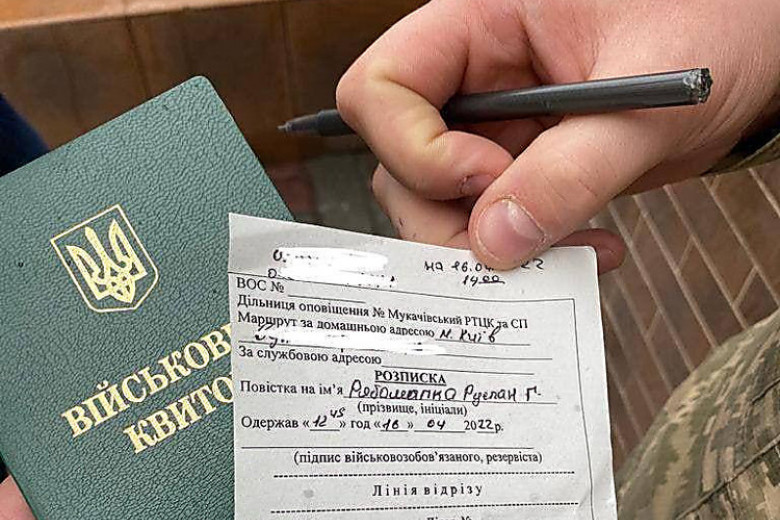 ВІЙСЬКОВ
КВИТО
на 16.04 22
14 00
ВОС №
Дільниця оповіщення № Мукачівський РТЦК та СП
Маршрут за домашньою адресою м. Київ
За службовою адресою
РОЗПИСКА
Повістка на ім'я Рябошапка Руслан Г.
(прізвище, ініціали)
Одержав «12 45» год «16» 04 2022р.
(підпис військовозобов'язаного, резервіста)
Лінія відрізу